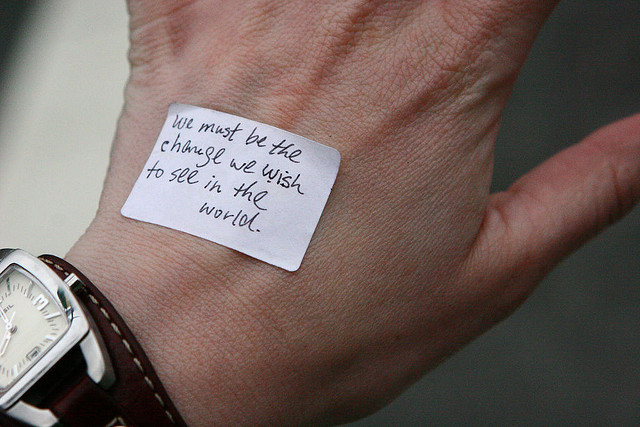 we must be the
change we wish
to see in the
world.